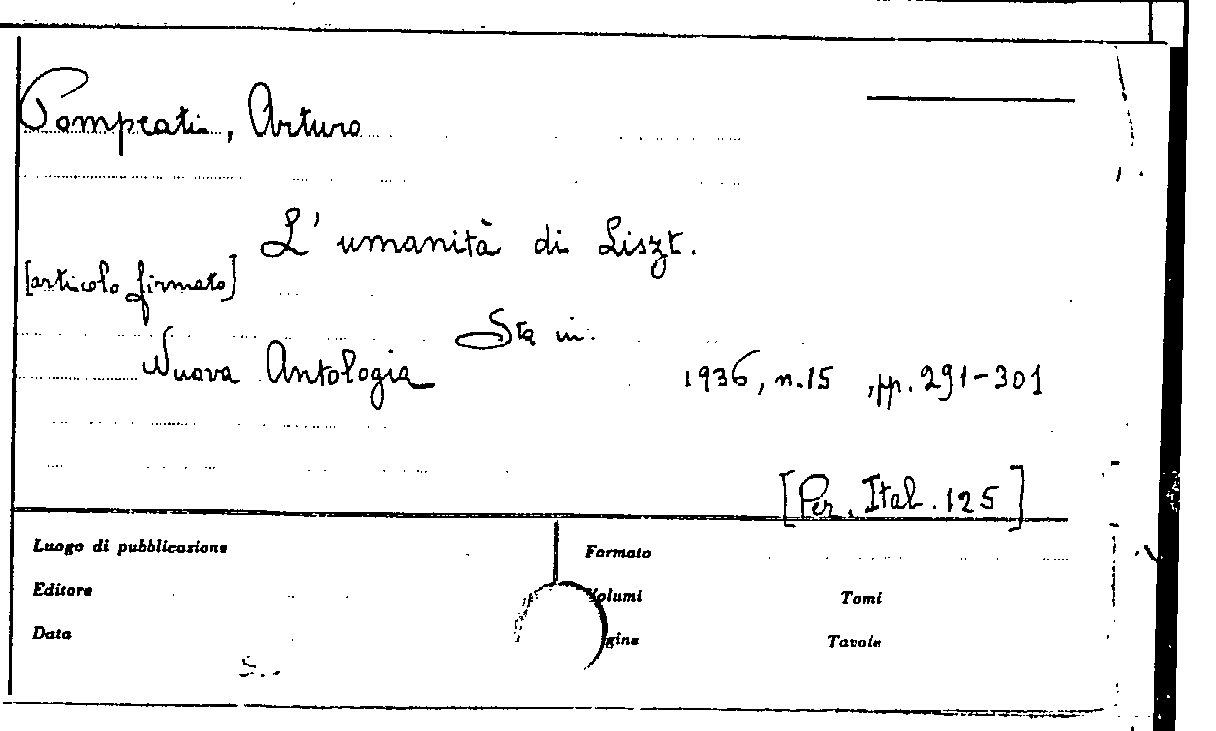 Pompeati, Arturo
L'umanità di Liszt.
[articolo firmato]
Sta in:
Nuova Antologia 1936, n.15, pp. 291-301
[Per. Ital. 125]
Luogo di pubblicazione Formato
Editore Volumi Tomi
Data Tavole